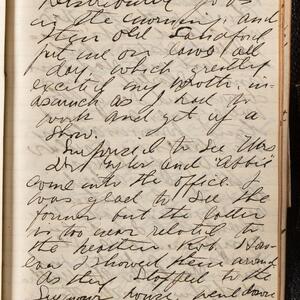 Distributed
in the morning, and
then old Sandford
put me on laws all
day, which greatly
excited my wroth, in-
asmuch as I had to
work and get up a
show.
Surprised to see Mrs
Dr. Tyler and "Abbie"
come into the office. I
was glad to see the
former but the latter
is too near related to
the heathen Rob. Har-
I showed them around
as they stopped to the
Seymour house went down